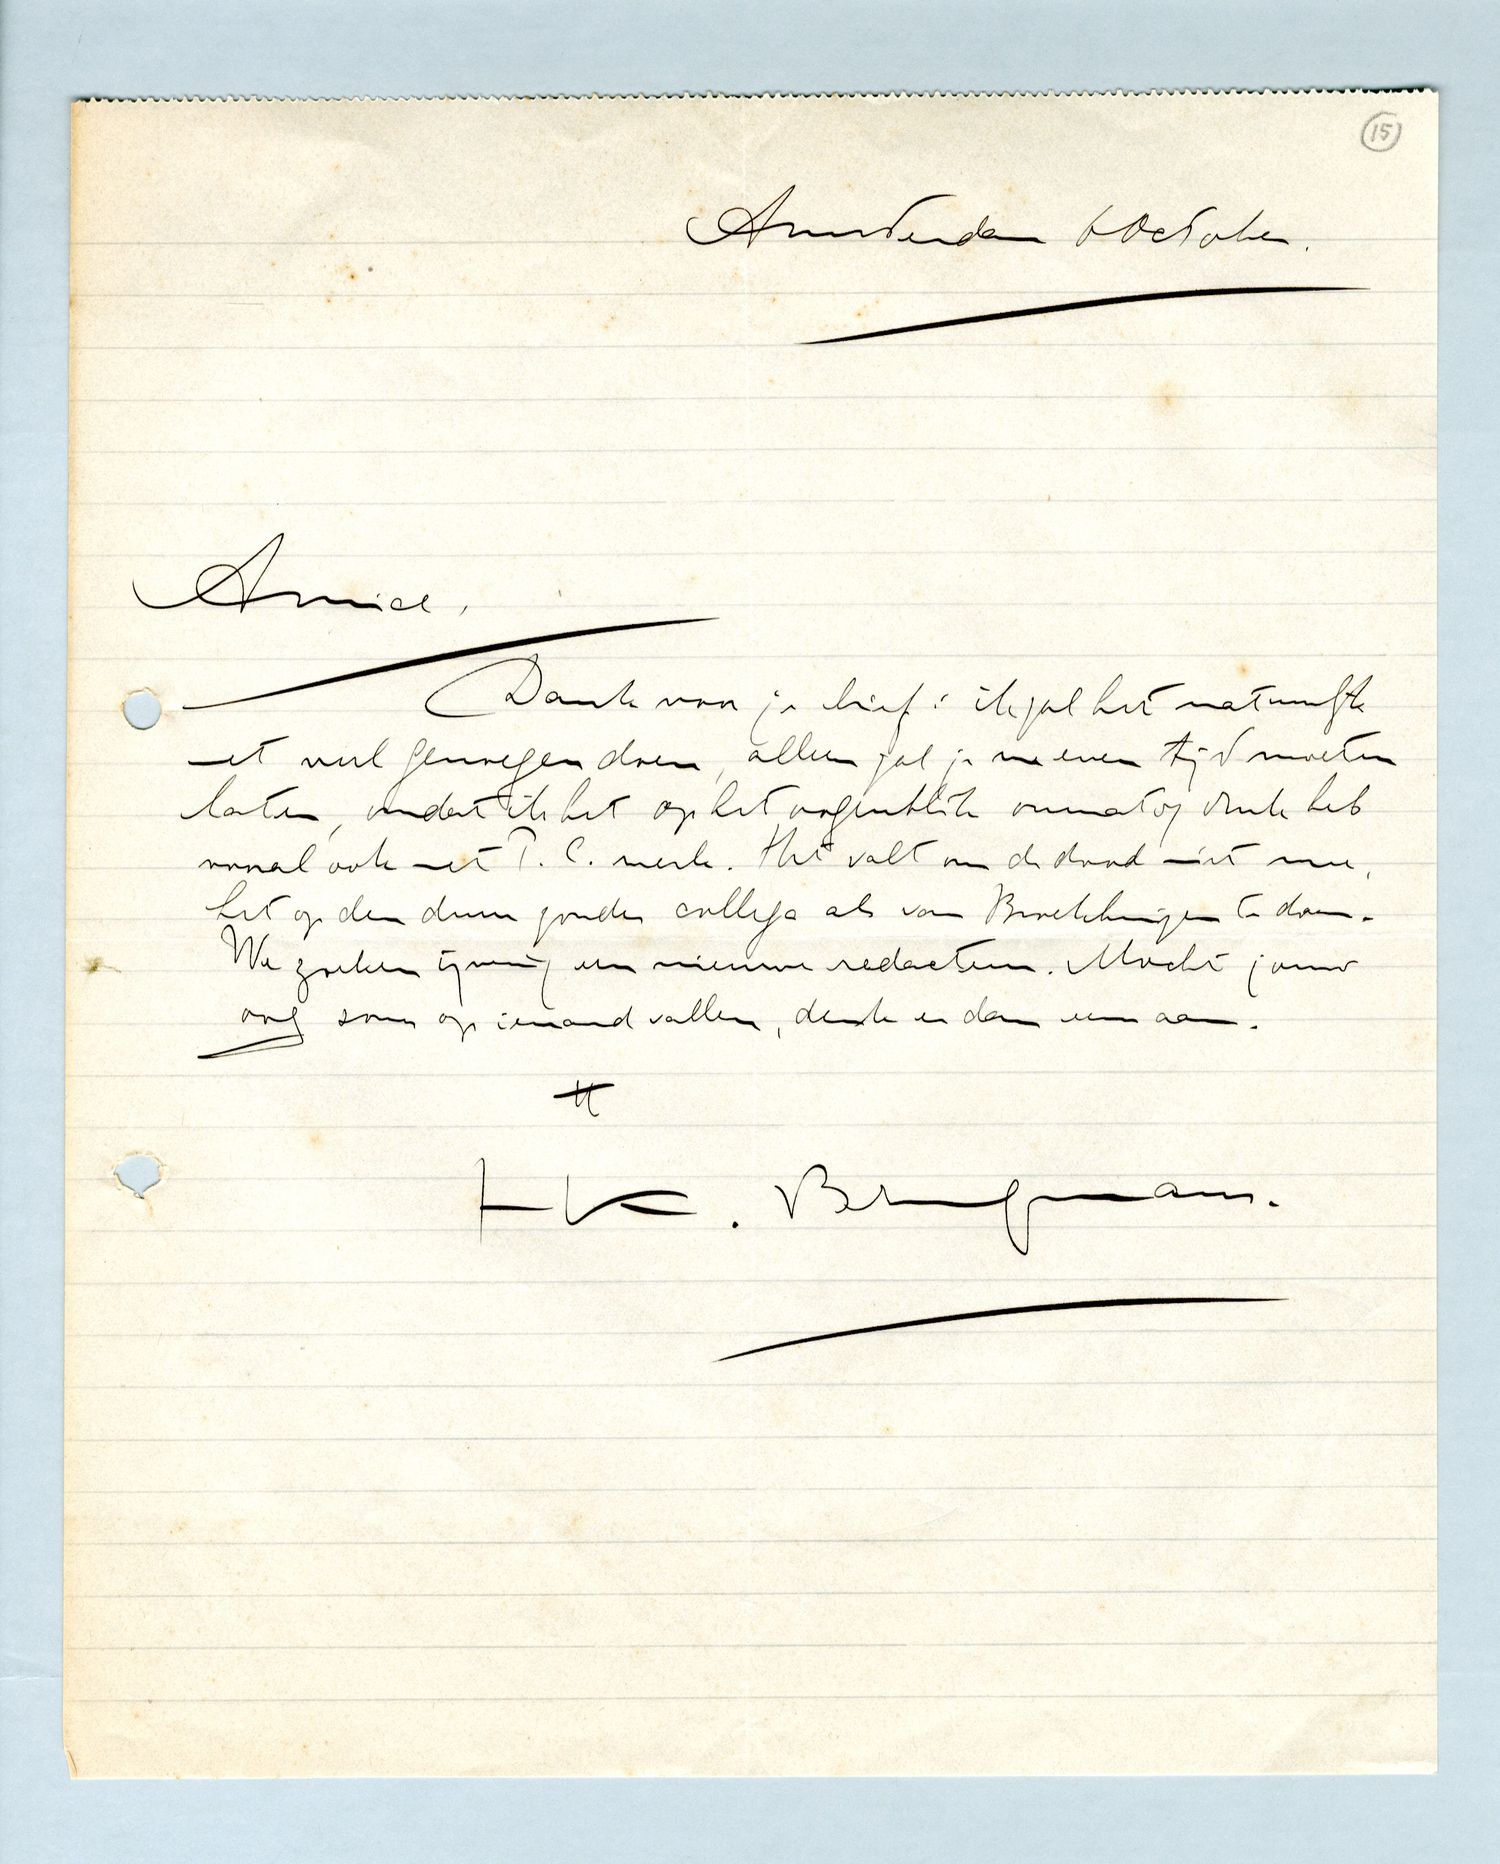 15
Amsterdam 6 October.
Amice,
Dank voor je brief: ik zal het natuurlijk
met veel genoegen doen, alleen zal je me even tijd moeten
laten, omdat ik het op het oogenblik onmatig druk heb
vooral ook met P.C. werk. Het valt om de dood niet mee,
het op den duur zonder collega als van te doen.
We zoeken ijverig een nieuwe redacteur. Mocht jouw
oog soms op iemand vallen, denk er dan eens aan.
tt
HK. Brugmans.